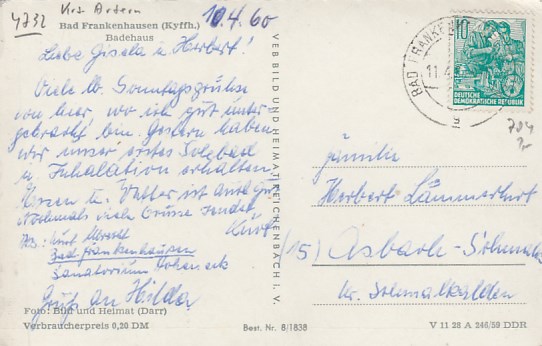 4732 Krs. Artern
Bad Frankenhausen (Kyffh.)
Badehaus
10.4.60
Liebe Gisela u. Herbert!
Viele lb. Sonntagsgrüße
von hier, wo ich gut unter-
gebracht bin. Gestern haben
wir unser erstes Solebad
u. Inhalation erhalten.
Essen u. Wetter ist
Nochmals viele Grüsse sendet
Kurt
Abs.: Kurt Albrecht
Bad Frankenhausen
Sanatorium Hoheneck
Gruß an Hilda
Foto: Bild und Heimat (Darr)
Verbraucherpreis 0,20 DM
VEB BILD UND HEIMAT REICHENBACH I. V.
Best. Nr. 8/1838
BAD FRANKEN
11.4
g
10
DEUTSCHE
DEMOKRATISCHE REPUBLIK
784
Familie
Herbert Lämmerhirt
(15) Asbach-Schmalk
Kr. Schmalkalden
V 11 28 A 246/59 DDR